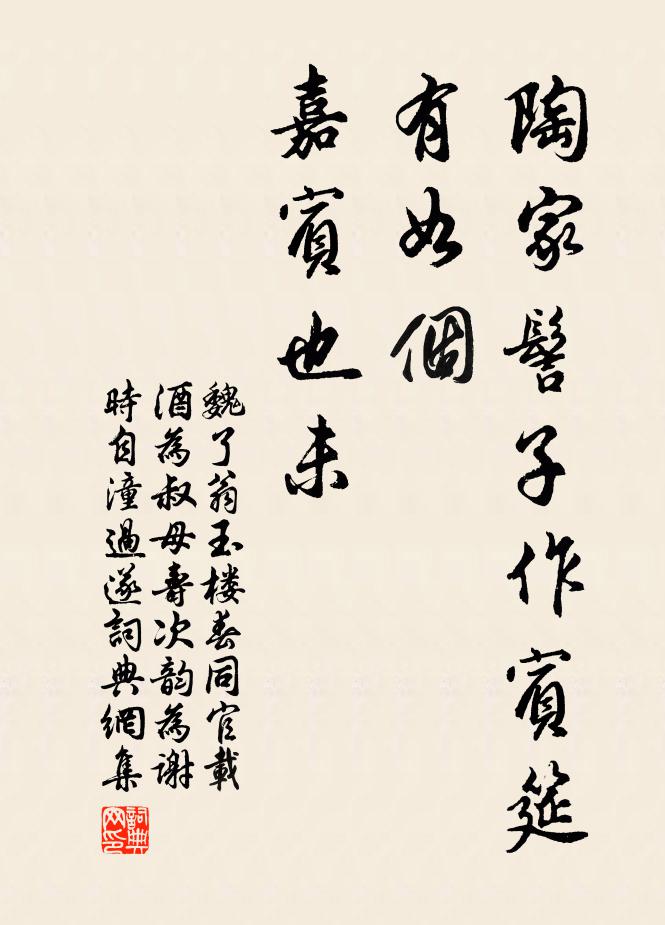 陶家髻子作賓筵
有如個
嘉賓也未
魏了翁玉楼春同官載
酒為叔母壽次韵為謝
時自潼過遂詞典網集
詞典
网印